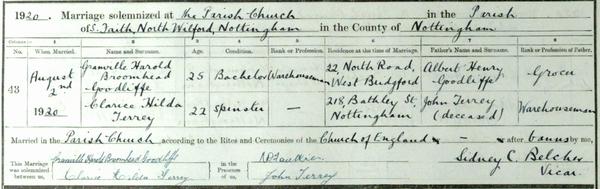 1920. Marriage solemnized at the Parish Church in the Parish
of S. Faith, North Wilford, Nottingham in the County of Nottingham
Columns:— 1 2 3 4 5 6 7 8
No. When Married. Name and Surname. Age. Condition. Rank or Profession. Residence at the time of Marriage. Father's Name and Surname. Rank or Profession of Father.
43 August 2nd 1920 Granville Harold Broomhead Goodliffe 25 Bachelor Warehouseman 22, North Road, West Bridgford Albert Henry Goodliffe Grocer
Clarice Hilda Terrey 22 Spinster — 218, Bathley St, Nottingham John Terrey (deceased) Warehouseman
Married in the Parish Church according to the Rites and Ceremonies of the Church of England after banns by me,
This Marriage was solemnized between us, Granville Harold Broomhead Goodliffe in the Presence of us, Sidney C. Belcher
Clarice Hilda Terrey John Terrey Vicar.